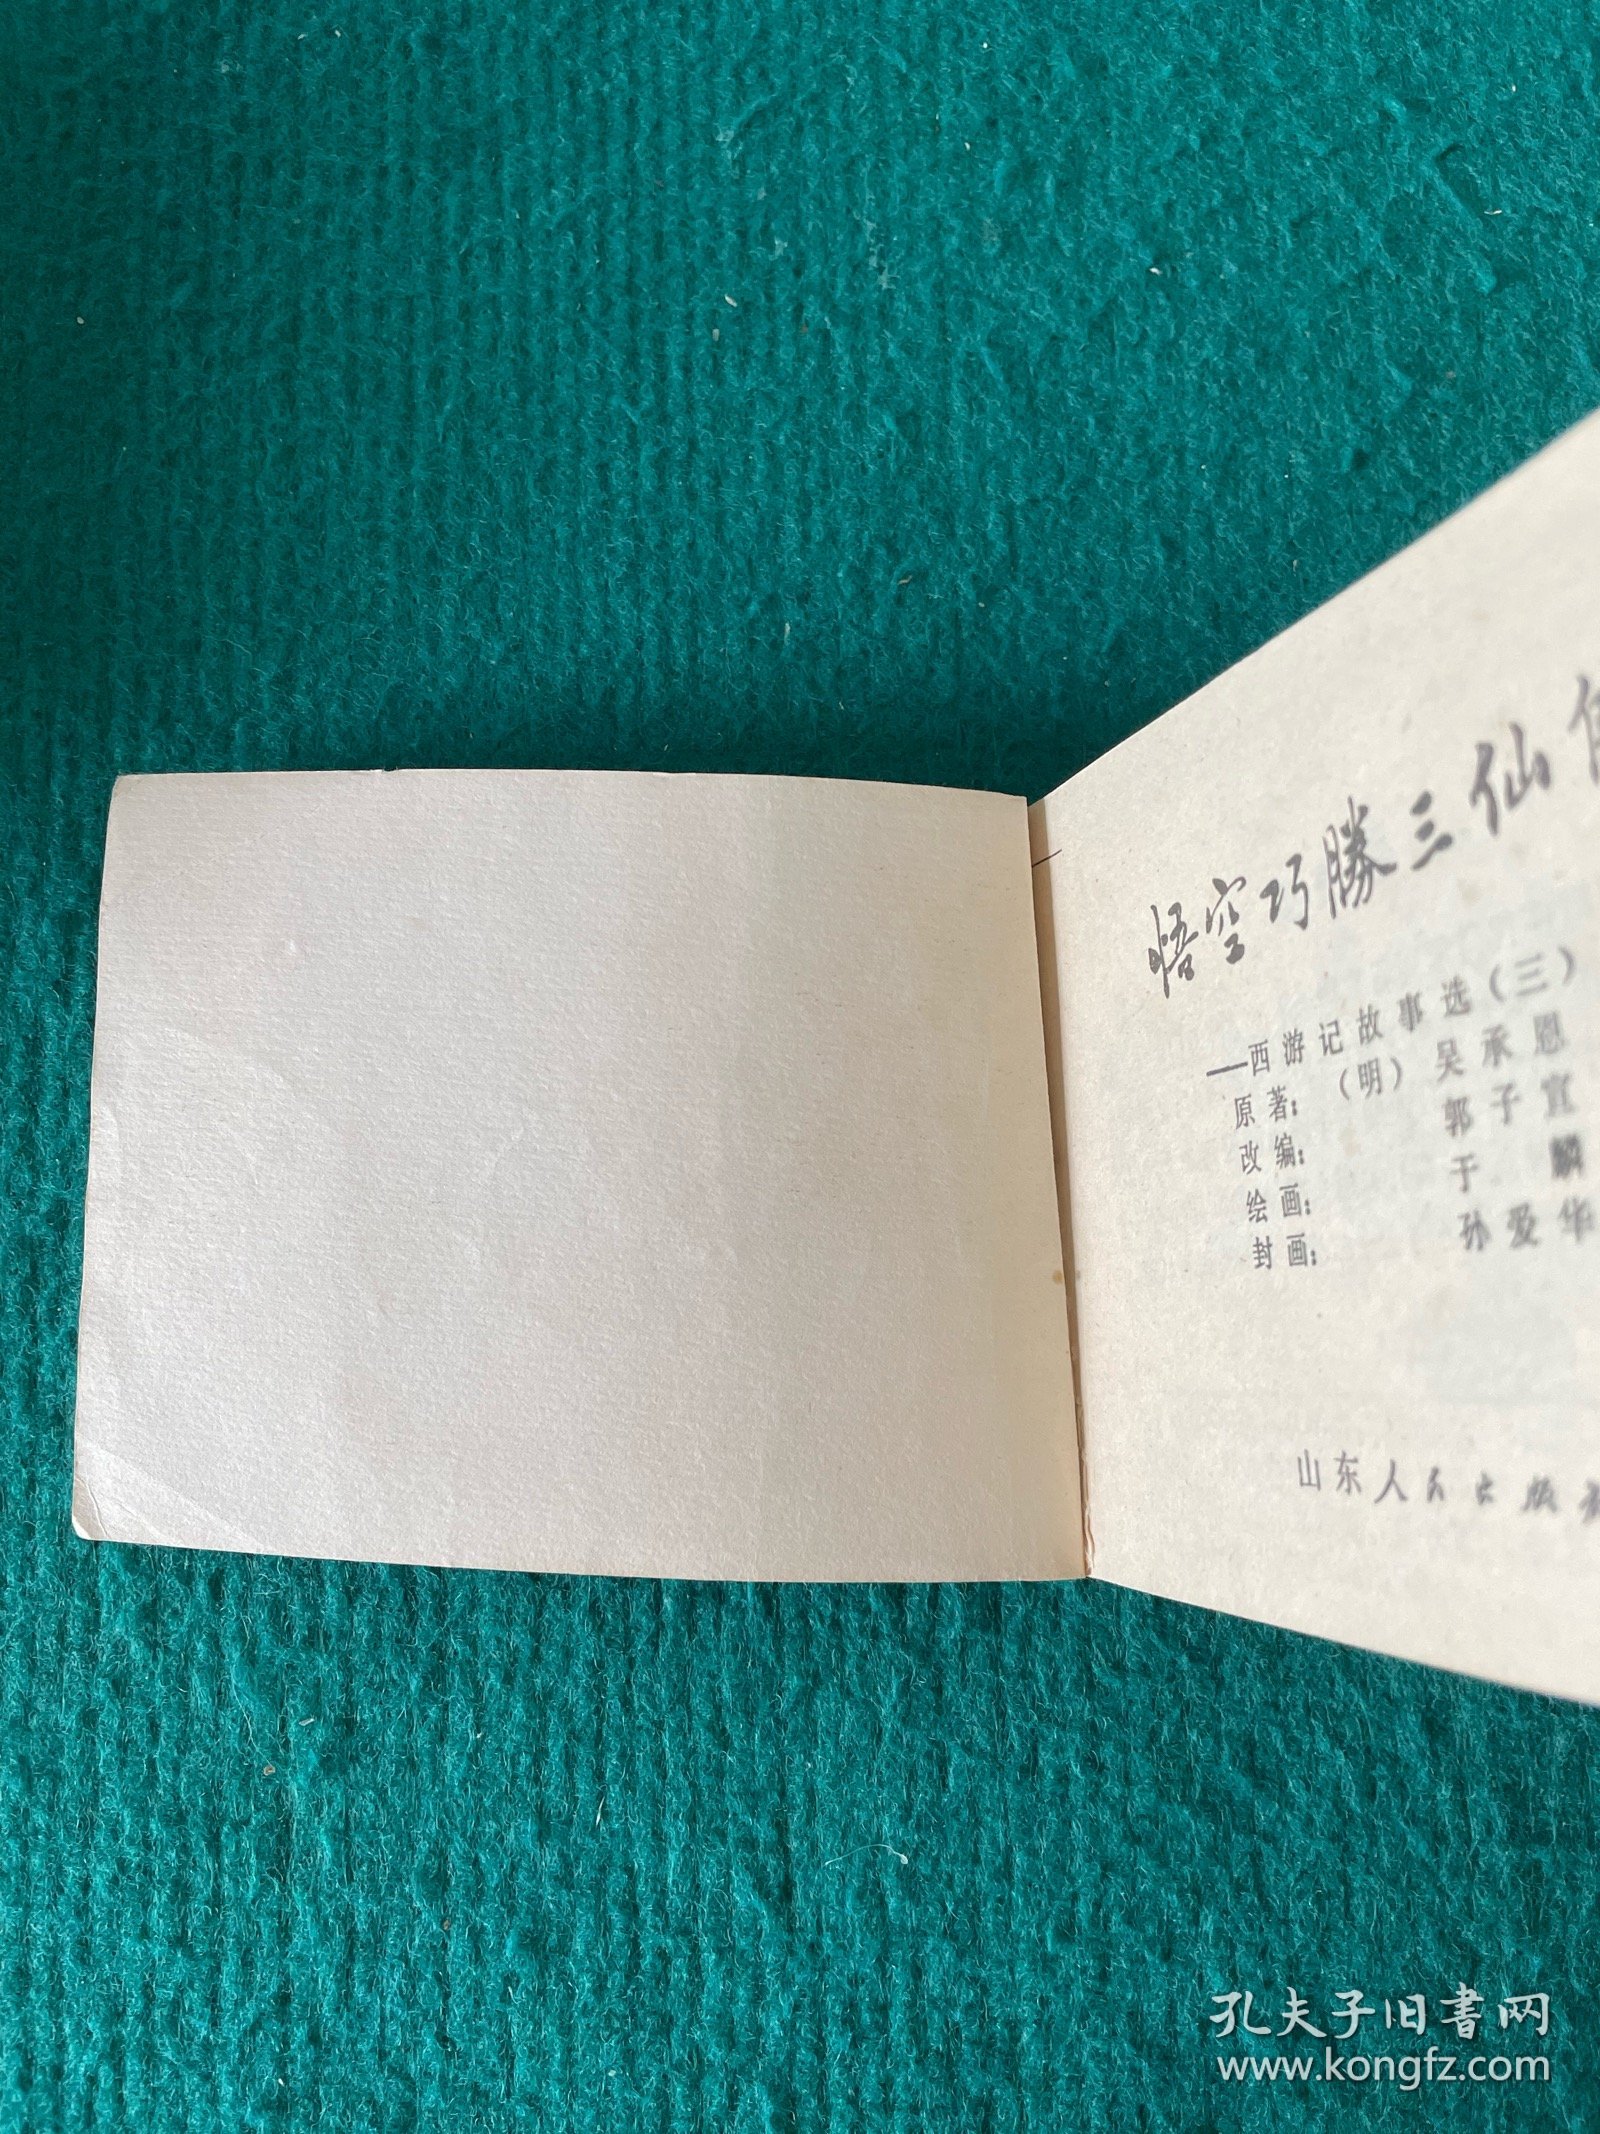 悟空巧勝三仙
——西游记故事选（三）
原著： （明）吴承恩
改编： 郭子宣
绘画： 于 麟
封画： 孙爱华
山东人民出版
孔夫子旧書网
www.kongfz.com